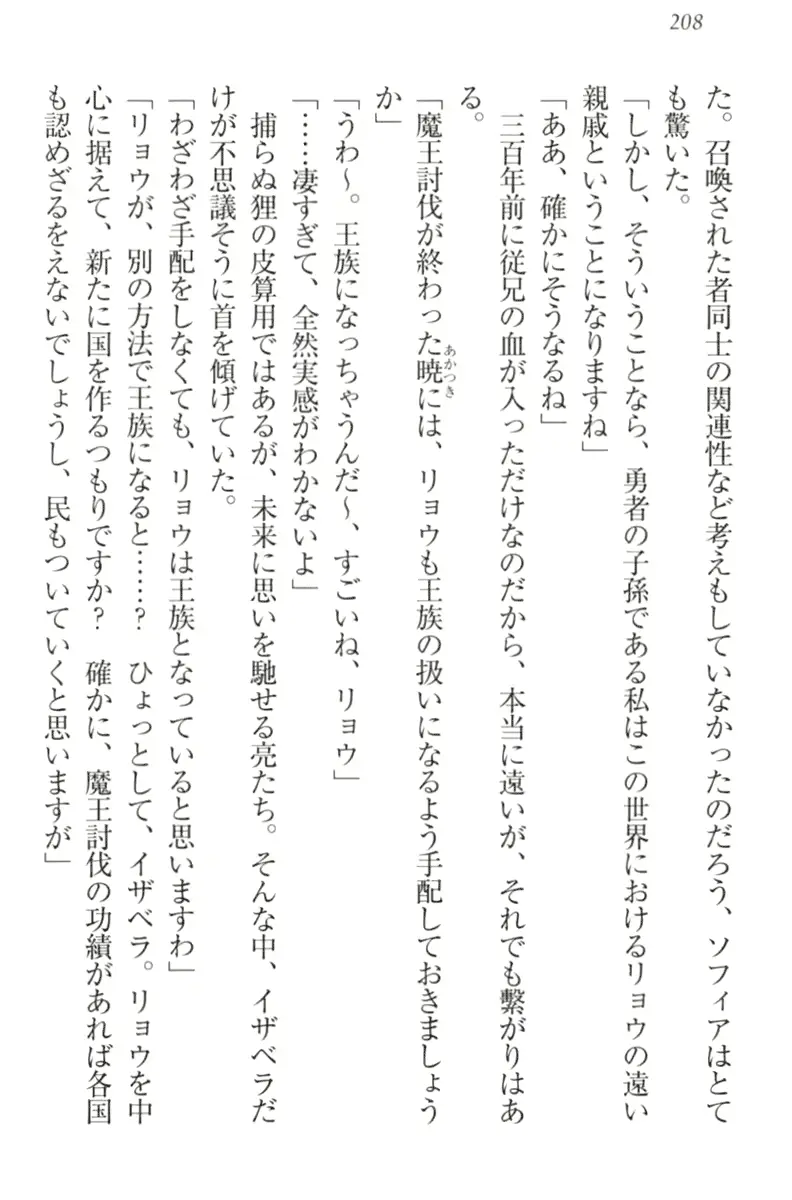 208
た。召喚された者同士の関連性など考えもしていなかったのだろう、ソフィアはとて
も驚いた。
「しかし、そういうことなら、勇者の子孫である私はこの世界におけるリョウの遠い
親戚ということになりますね」
「ああ、確かにそうなるね」
　三百年前に従兄の血が入っただけなのだから、本当に遠いが、それでも繋がりはあ
る。
「魔王討伐が終わった暁には、リョウも王族の扱いになるよう手配しておきましょう
あかつき
か」
「うわ〜。王族になっちゃうんだ〜、すごいね、リョウ」
「……凄すぎて、全然実感がわかないよ」
　捕らぬ狸の皮算用ではあるが、未来に思いを馳せる亮たち。そんな中、イザベラだ
けが不思議そうに首を傾げていた。
「わざわざ手配をしなくても、リョウは王族となっていると思いますわ」
「リョウが、別の方法で王族になると……？　ひょっとして、イザベラ。リョウを中
心に据えて、新たに国を作るつもりですか？　確かに、魔王討伐の功績があれば各国
も認めざるをえないでしょうし、民もついていくと思いますが」